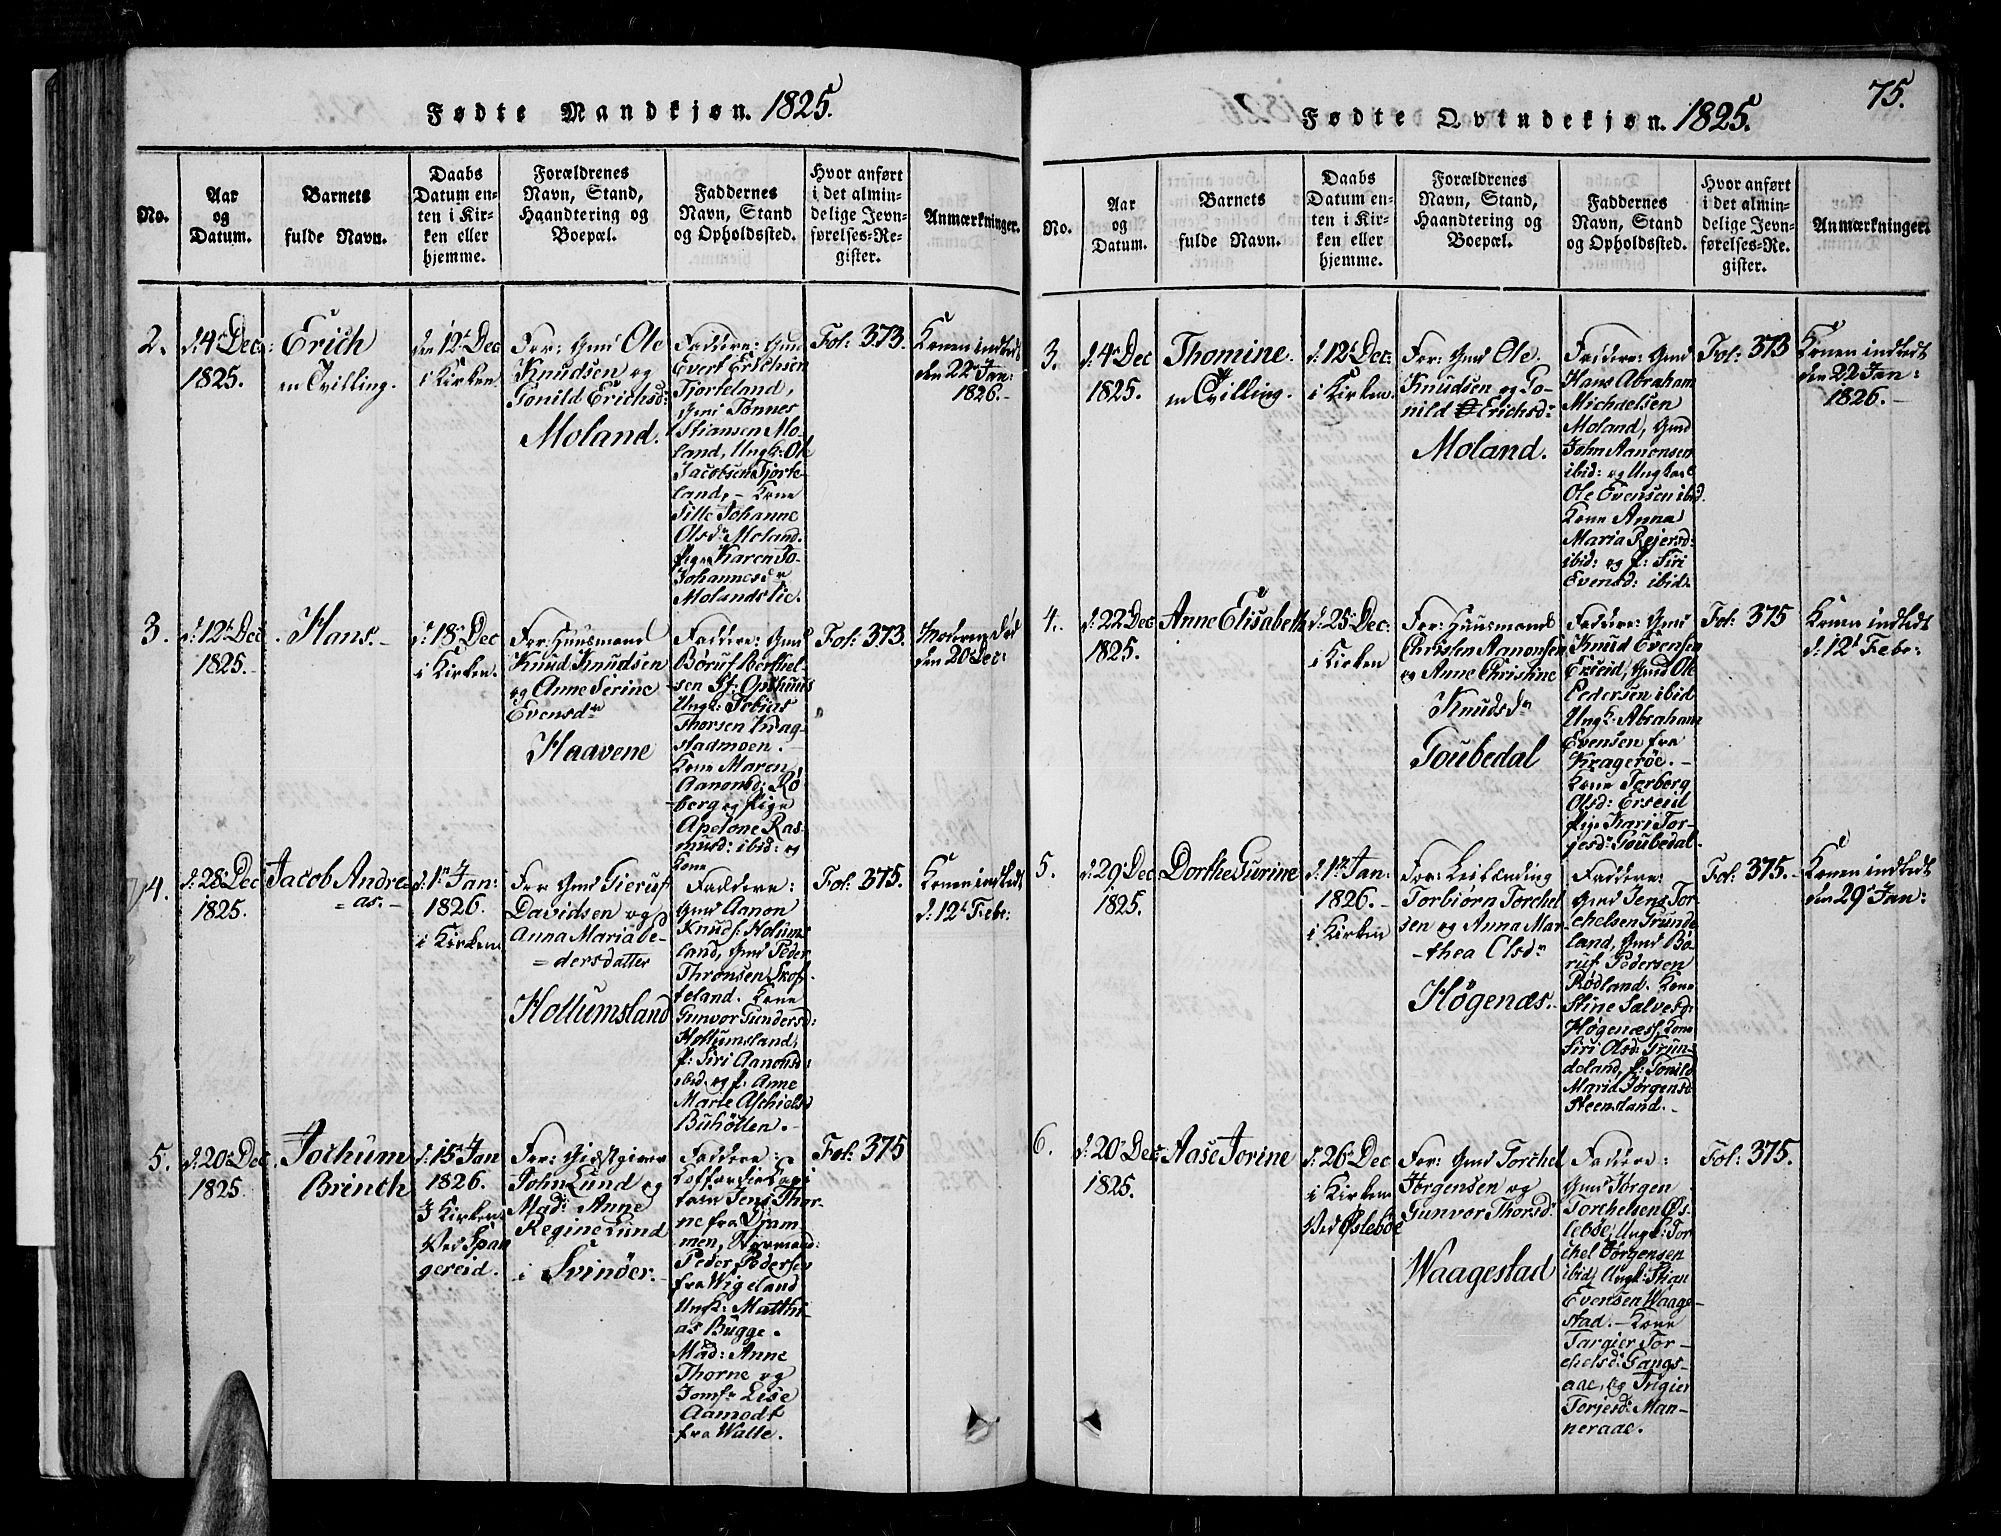 Fødte Mandkjøn. 1825.
No.
Aar
og
Datum.
Barnets
fulde Navn.
Daabs
Datum en-
ten i Kir-
ken eller
hjemme.
Forældrenes
Navn, Stand,
Haandtering og
Boepæl.
Faddernes
Navn, Stand
og Opholdssted.
Hvor anført
i det almin-
delige Jevn-
førelses-Re-
gister.
Anmærkninger.
2.
d: 4de Dec:
1825.
Erich
en Tvilling.
den 12te Dec
i Kirken.
For: Gmd Ole
Knudsen og
Gonild Erichsd:
Moland.
Faddere: Gmd
Evert Erichsen
Fjorteland,
Gmd Tønnes
Stiansen Mo-
land, Ungk: Ole
Jacobsen Fjorte-
land, - Kone
Sille Johanne
Olsdr Moland.
Pige Karen Jo-
Johannesdr
Molandslie.
Fol: 373.
Konen indledt
den 22de Jan:
1826.-
3.
d: 12te Dec
1825.
Hans.
d: 18de Dec
i Kirken.
For: Huusmand
Knud Knudsen
og Anne Serine
Evensdr
Haavene
Faddere: Gmd
Børuf Berthel-
sen St: Osthuus
Ungk: Tobias
Thorsen Krag-
stadmoen.
Kone Maren
Aanonsd: Rø-
berg og Pige
Apelone Ras-
musd: ibid: og
Kone
Fol: 373.
Moderen død
den 20 Dec:
4.
d: 28de Dec
1825.
Jacob Andre-
=as.-
d: 1ste Jan:
1826.
i Kirken
For Gmd Gieruf
Davidsen og
Anna Maria Pe-
=dersdatter
Hollumsland
Faddere:
Gmd Aanon
Knuds: Holums-
land, Gmd Peder
Thronsen Skof-
teland. Kone
Gunvor Gundersd:
Hollumsland,
P: Siri Aanonsd:
ibid: og P. Anne
Marte Aschielsd
Buhølen.-
Fol: 375.
Konen indledt
d: 12te Febr:
5.
d: 20de Dec
1825.
Jochum
Brinch
d: 15de Jan
1826.
I Kirken
Ved Span
gereid.
For: Giestgiver
John Lund og
Mad: Anne
Regine Lund
i Svinöer.
Faddere:
Coffardie Capi
tain Jens Thor-
ne fra Dram-
men, Styrmand:
Peder Pedersen
fra Wigeland
Ungk: Matthi-
as Bugge.
Mad: Anne
Thorne og
Jomfr Lise
Aamodt
fra Walle.
Fol: 375
75.
Fødte Qvindekjøn. 1825.
No.
Aar
og
Datum.
Barnets
fulde Navn.
Daabs
Datum en-
ten i Kir-
ken eller
hjemme.
Forældrenes
Navn, Stand,
Haandtering og
Boepæl.
Faddernes
Navn, Stand
og Opholdssted.
Hvor anført
i det almin-
delige Jevn-
førelses-Re-
gister.
Anmærkninger.
3.
d: 4de Dec
1825.
Thomine.
en Tvilling.
d: 12te Dec:
i Kirken.
For: Gmd Ole
Knudsen og Go-
nild Erichsd:
Moland.
Faddere: Gmd
Hans Abraham
Michaelsen
Moland, Gmd
John Aanonsen
ibid: og Ungkarl
Ole Evensen ibid.
Kone Anna
Maria Rejersd:
ibid: og P: Siri
Evensd: ibid.
Fol: 373
Konen indledt
den 22de Jan:
1826.-
4.
d: 22de Dec
1825.
Anne Elisabeth
d: 25de Dec:
i Kirken
For: Huusmand
Christen Aanonsen
og Anne Christine
Knudsdr
Goubedal
Faddere: Gmd
Knud Evensen
Erseid, Gmd Ole
Pedersen ibid
Ungk: Abraham
Evensen fra
Kragerøe.-
Kone Torberg
Olsd: Erseid
Pige Kari Tor-
gjersd: Goubedal.
Fol: 375
Konen indledt
d: 12te Febr:
5.
d: 29de Dec
1825.
Dorthe Gurine
d: 1ste Jan:
1826.-
i Kirken
For: Leilænding
Torbiørn Torchel
sen og Anna Mar-
-thea Olsdr
Høgenæs.-
Faddere:
Gmd Jens Tor-
chelsen Grunde
land, Gmd Bø-
ruf Pedersen
Rødland. Kone
Stine Salvesd:
Høgenæs, Kone
Siri Olsd: Grun-
deland, P: Gonild
Maria Jørgensd
Steensland.-
Fol: 375.
Konen indledt
den 29de Jan:
6.
d: 20de Dec:
1825.
Aase Jorine
d: 26de Dec
i Kirken
Ved Øslebøe
For: Gmd Torchel
Jørgensen og
Gunvor Thorsd:
Waagestad
Faddere:
Gmd Jørgen
Torchelsen Øs-
lebøe, Ungk: Tor-
chel Jørgensen
ibid, Ungk: Stian
Evensen Waage-
stad.- Kone
Targier Tor-
chelsd: Gangs-
aae, og Trigier
Torjesd: Man-
neraae.
Fol: 375.